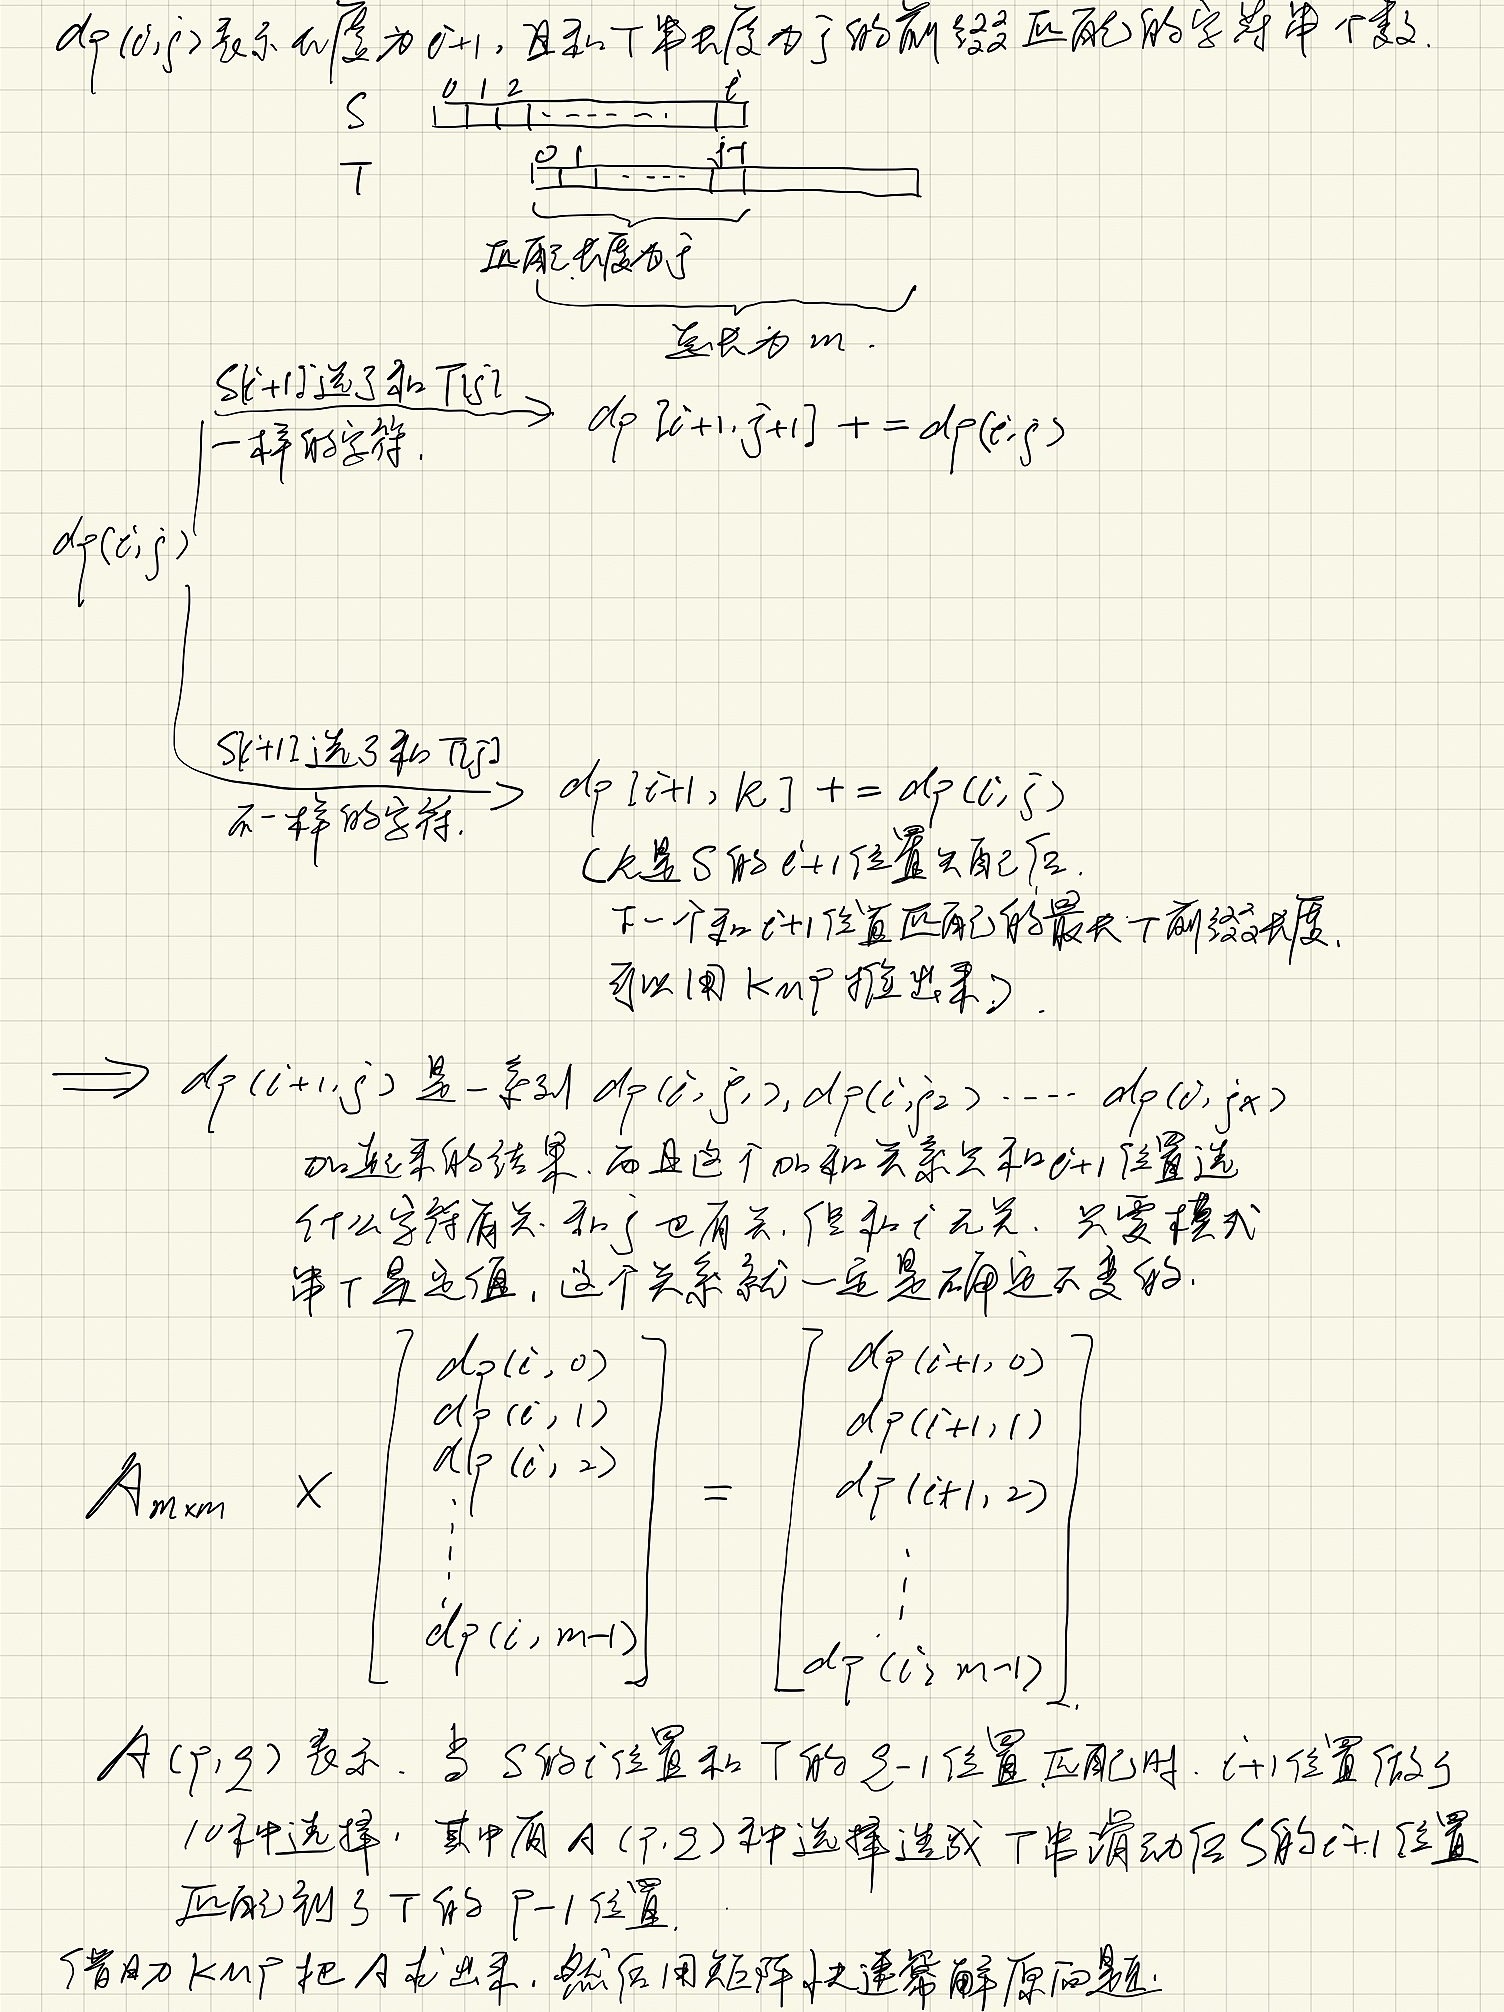 dp(i,j)表示长度为i+1,且和T串长度为j的前缀匹配的字符串个数.
0 1 2 i
S
0 1 j-1
T
匹配长度为j
总长为m.
S[i+1]选了和T[j]
一样的字符.
dp[i+1,j+1] += dp(i,j)
dp(i,j)
S[i+1]选了和T[j]
不一样的字符.
dp[i+1,k] += dp(i,j)
(k是S的i+1位置失配后.
下一个和i+1位置匹配的最长T前缀长度.
可以用KMP推出来).
⇒ dp(i+1,j)是一系列dp(i,j1),dp(i,j2)----dp(i,jx)
加起来的结果.而且这个加和关系只和i+1位置选
什么字符有关.和j也有关,但和i无关.只要模式
串T是定值,这个关系就一定是确定不变的.
A m×m × [ dp(i,0) dp(i,1) dp(i,2) ⋮ dp(i,m-1) ] = [ dp(i+1,0) dp(i+1,1) dp(i+1,2) ⋮ dp(i,m-1) ]
A(p,q)表示.当S的i位置和T的q-1位置匹配时.i+1位置做了
10种选择,其中有A(p,q)种选择造成T串滑动后S的i+1位置
匹配到了T的p-1位置.
借助KMP把A求出来.然后用矩阵快速幂解原问题.